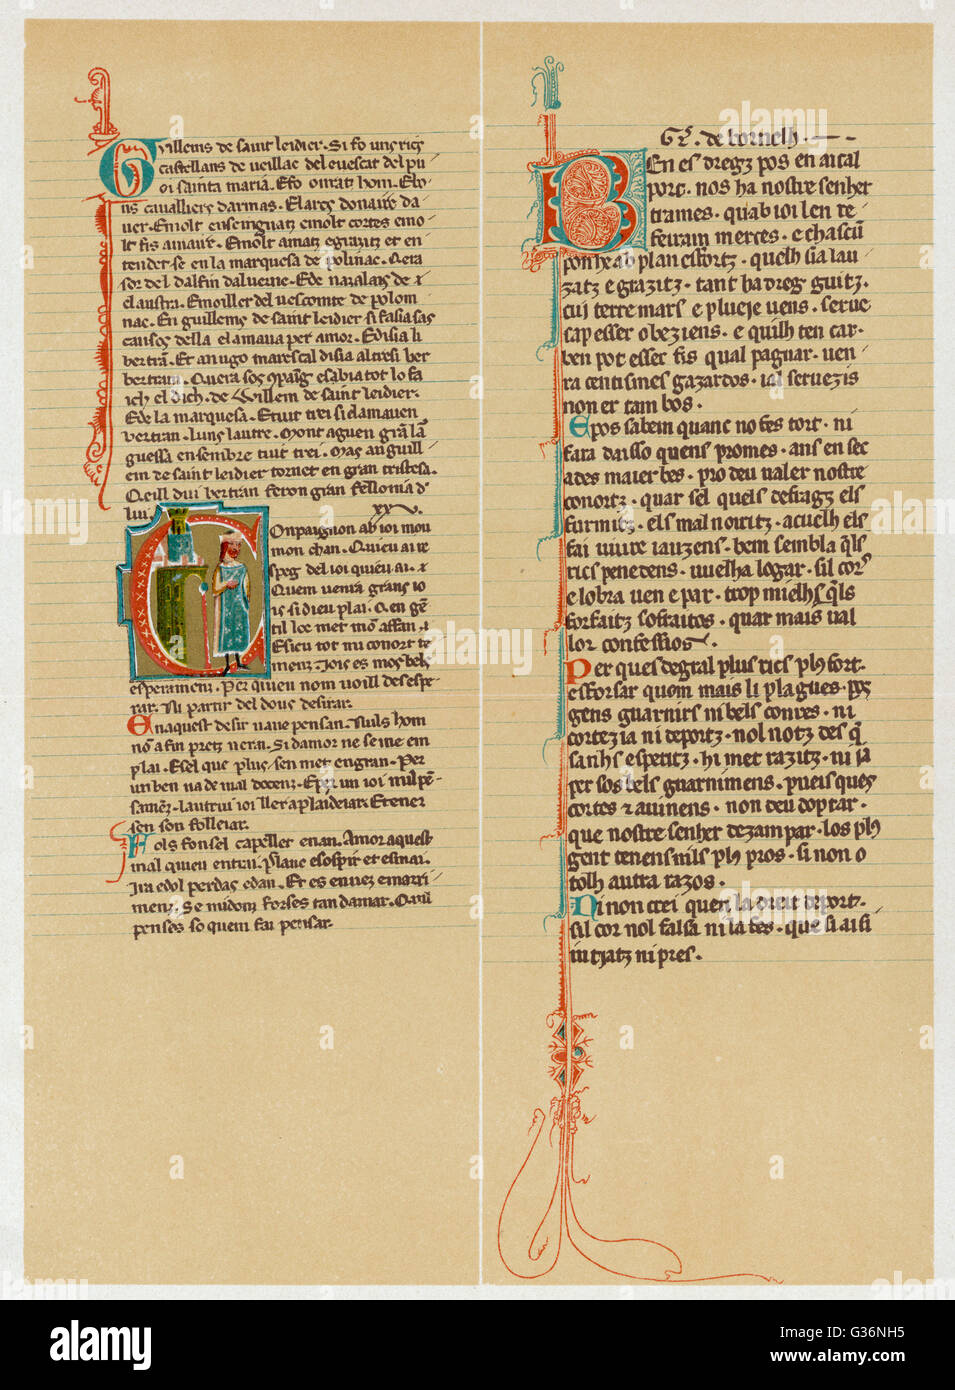 Guillems de saint leidier. Si fo uns rics
castellans de veillac del evescat del pu
oi sainta maria. E fo onratz hom. E bo
ns cavalliers darmas. E larcs donaire da
ver. E molt enseingnatz e molt cortes e mo
lt fis amaire. E molt amatz e grazitz et en
tendet se en la marquesa de polinac. Q era
sor del dalfin dalverne. E de
claustra. E moiller del vescomte de polom
nac. En guillems de saint leidier si fasia sas
cansos della e lamava per amor. E disia li
bertran. Et an ugo marescal disia altresi ber
bertran. Q era sos e sabia tot lo fa
ich el dich. de Willem de saint leidier.
E de la marquesa. E tuit trei si clamaven
bertran. luns lautre. Mont aguen gran lan
guessa ensembre tuit trei. Mas an guill
em de saint leidier tornet en gran tristesa.
Q eill dui bertran feron gran fellonia d
lui. xx v.
Conpaignon ab ioi mou
mon chan. Qui eu ai re
speg del ioi qui eu ai. 
Quem venra grans io
is si dieu plai. Q en gen
til loc met mon affan. 
E si eu tot mi conort te
menz. Iois es mos bels
esperamenz. Per qui eu nom voill desespe
rar. Ni partir del dous desirar.
En aquest desir vauc pensan. Nuls hom
no a fin pretz verai. Si damor ne se ine em
plai. E sel que plus sen met en gran. Per
un ben na de mal docenz. E per un ioi mil pen
samenz. lautrui ioi
sen son folleiar.
Fols fon sel capeller enan. Amor aquest
mal qui eu entrai. Planc e sospir et esmai.
Ira e dol perdas e dan. Et es en vez e marri
menz. Se midonz forses tan damar. Q mi
penses so quem fai pensar.
G. de bornelh.
Ben es dregz pos en aital
port. nos ha nostre senher
trames. quab ioi len re
feiram merces. e chascun
ponhe ab plan esfortz. quelh sia lau
zatz e grazitz. tant ha dreg guitz.
cui terre mars e plueje vens. serve
cap esser obeziens. e quilh ten car
ben pot esser fis qual pagnar. ven
ra cent
non er tam bos.
E pos sabem quanc no fes tort. ni
fara daisso quens promes. ans en sec
ades maier bes. pro deu valer nostre
conortz. quar sel quels defragz els
furmitz. els mal noiritz. acuelh els
fai viure iauzens. bem sembla quels
rics penedens. vuelha logar. sil cors
e lobra ven e par. trop mielhs quels
forfaitz sofraitos. quar mais val
lor confessios.
Per ques degral plus rics plus fort.
esforsar quom mais li plagues. 
gens guarnirs ni bels conres. ni
cortezia ni deportz. nol notz des quel
sanhs esperitz. hi met razitz. ni ia
per sos bels guarnimens. pueis ques
cortes e avinens. non deu doptar.
que nostre senher dezampar. los plus
gent tenens nils plus pros. si non o
tolh autra razos.
Ni non crei quen la dreit deport.
sil cor nol falsa ni la fes. que si ai si
ni pres.
alamy
Image ID: G36NH5
www.alamy.com